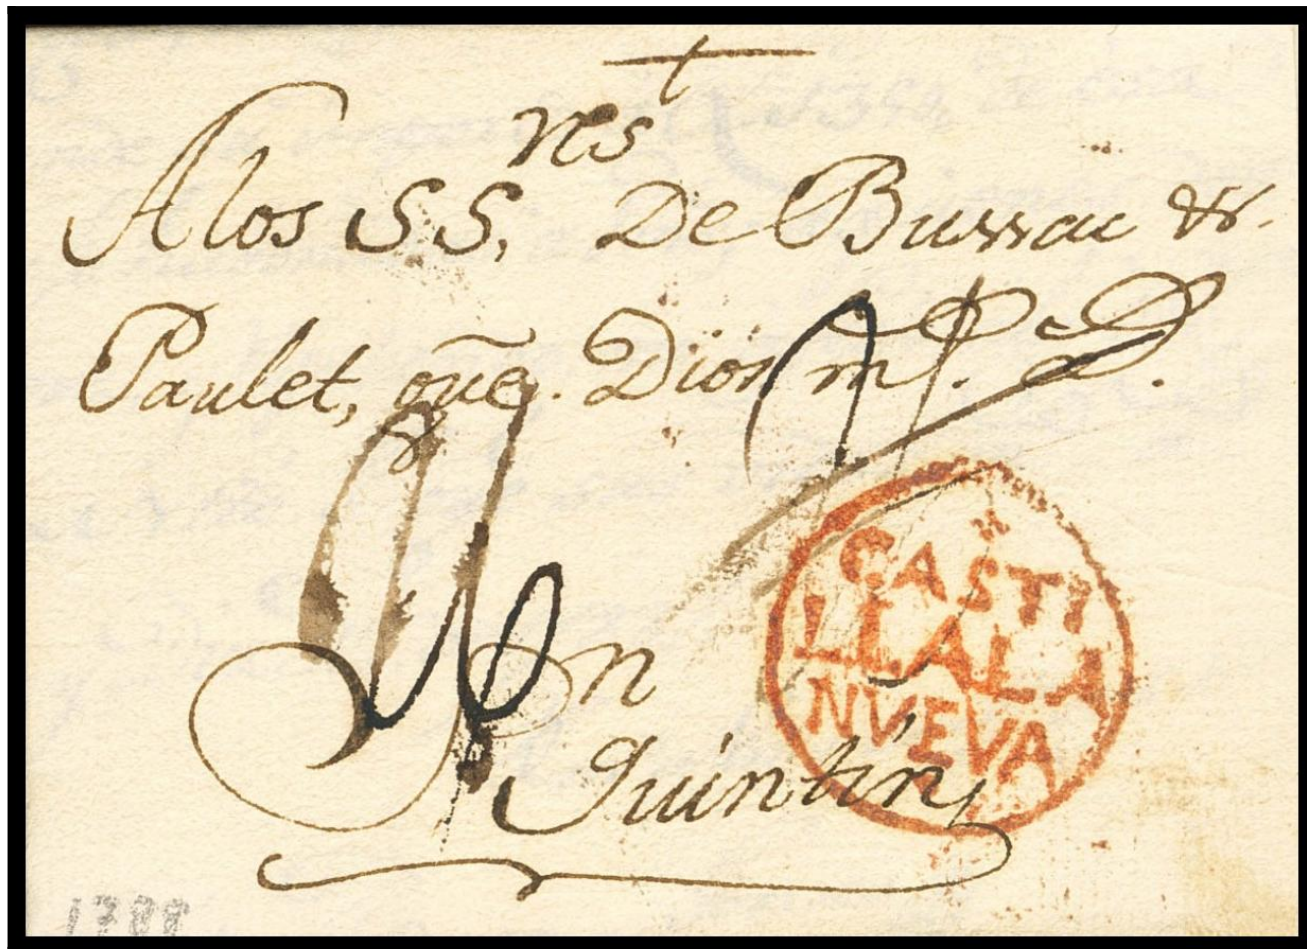 res
A los SS, De Bussac &.
Paulet, que. Dios m.
Sn
Quintin,
CASTI
LLALA
NVEVA
1788